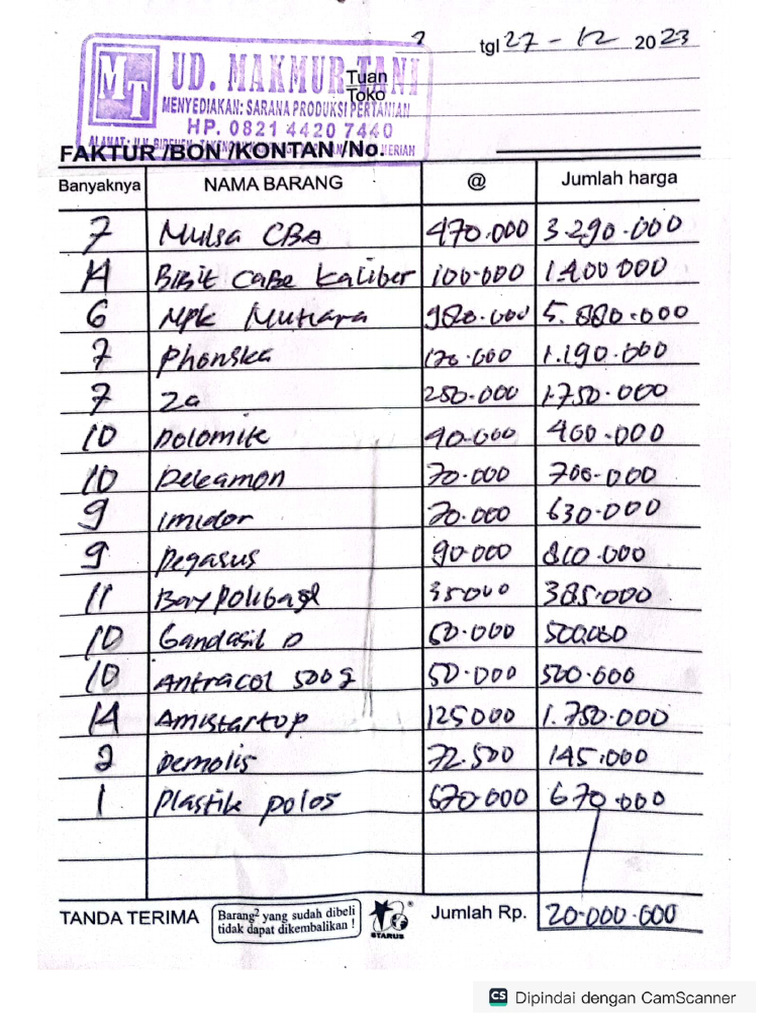 tgl 27 - 12 2023
UD. MAKMUR TANI
Tuan
Toko
MENYEDIAKAN: SARANA PRODUKSI PERTANIAN
HP. 0821 4420 7440
FAKTUR /BON /KONTAN /No.
Banyaknya NAMA BARANG @ Jumlah harga
7 Mulsa CBA 470.000 3.290.000
14 Bibit Cabe Kaliber 100.000 1.400.000
6 Npk Mutiara 980.000 5.880.000
7 Phonska 170.000 1.190.000
7 Za 250.000 1.750.000
10 Dolomik 40.000 400.000
10 70.000 700.000
9 Imidor 70.000 630.000
9 Pegasus 90.000 810.000
11 35000 385.000
10 Gandasil D 50.000 500.000
10 Antracol 500 g 50.000 500.000
14 Amistartop 125000 1.750.000
2 Demolis 72.500 145.000
1 Plastik polos 670.000 670.000
TANDA TERIMA Barang2 yang sudah dibeli tidak dapat dikembalikan ! STARUS Jumlah Rp. 20.000.000
CS Dipindai dengan CamScanner